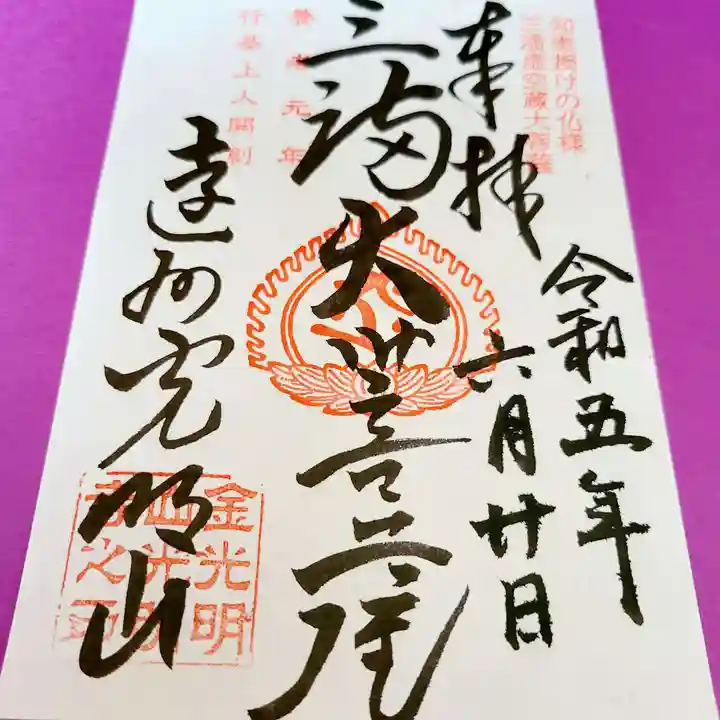 知恵授けの仏様
三満虚空蔵大菩薩
奉拝
令和五年
六月廿日
三満大
養老元年
行基上人開創
遠州光明山
金光明
山光明
寺之印